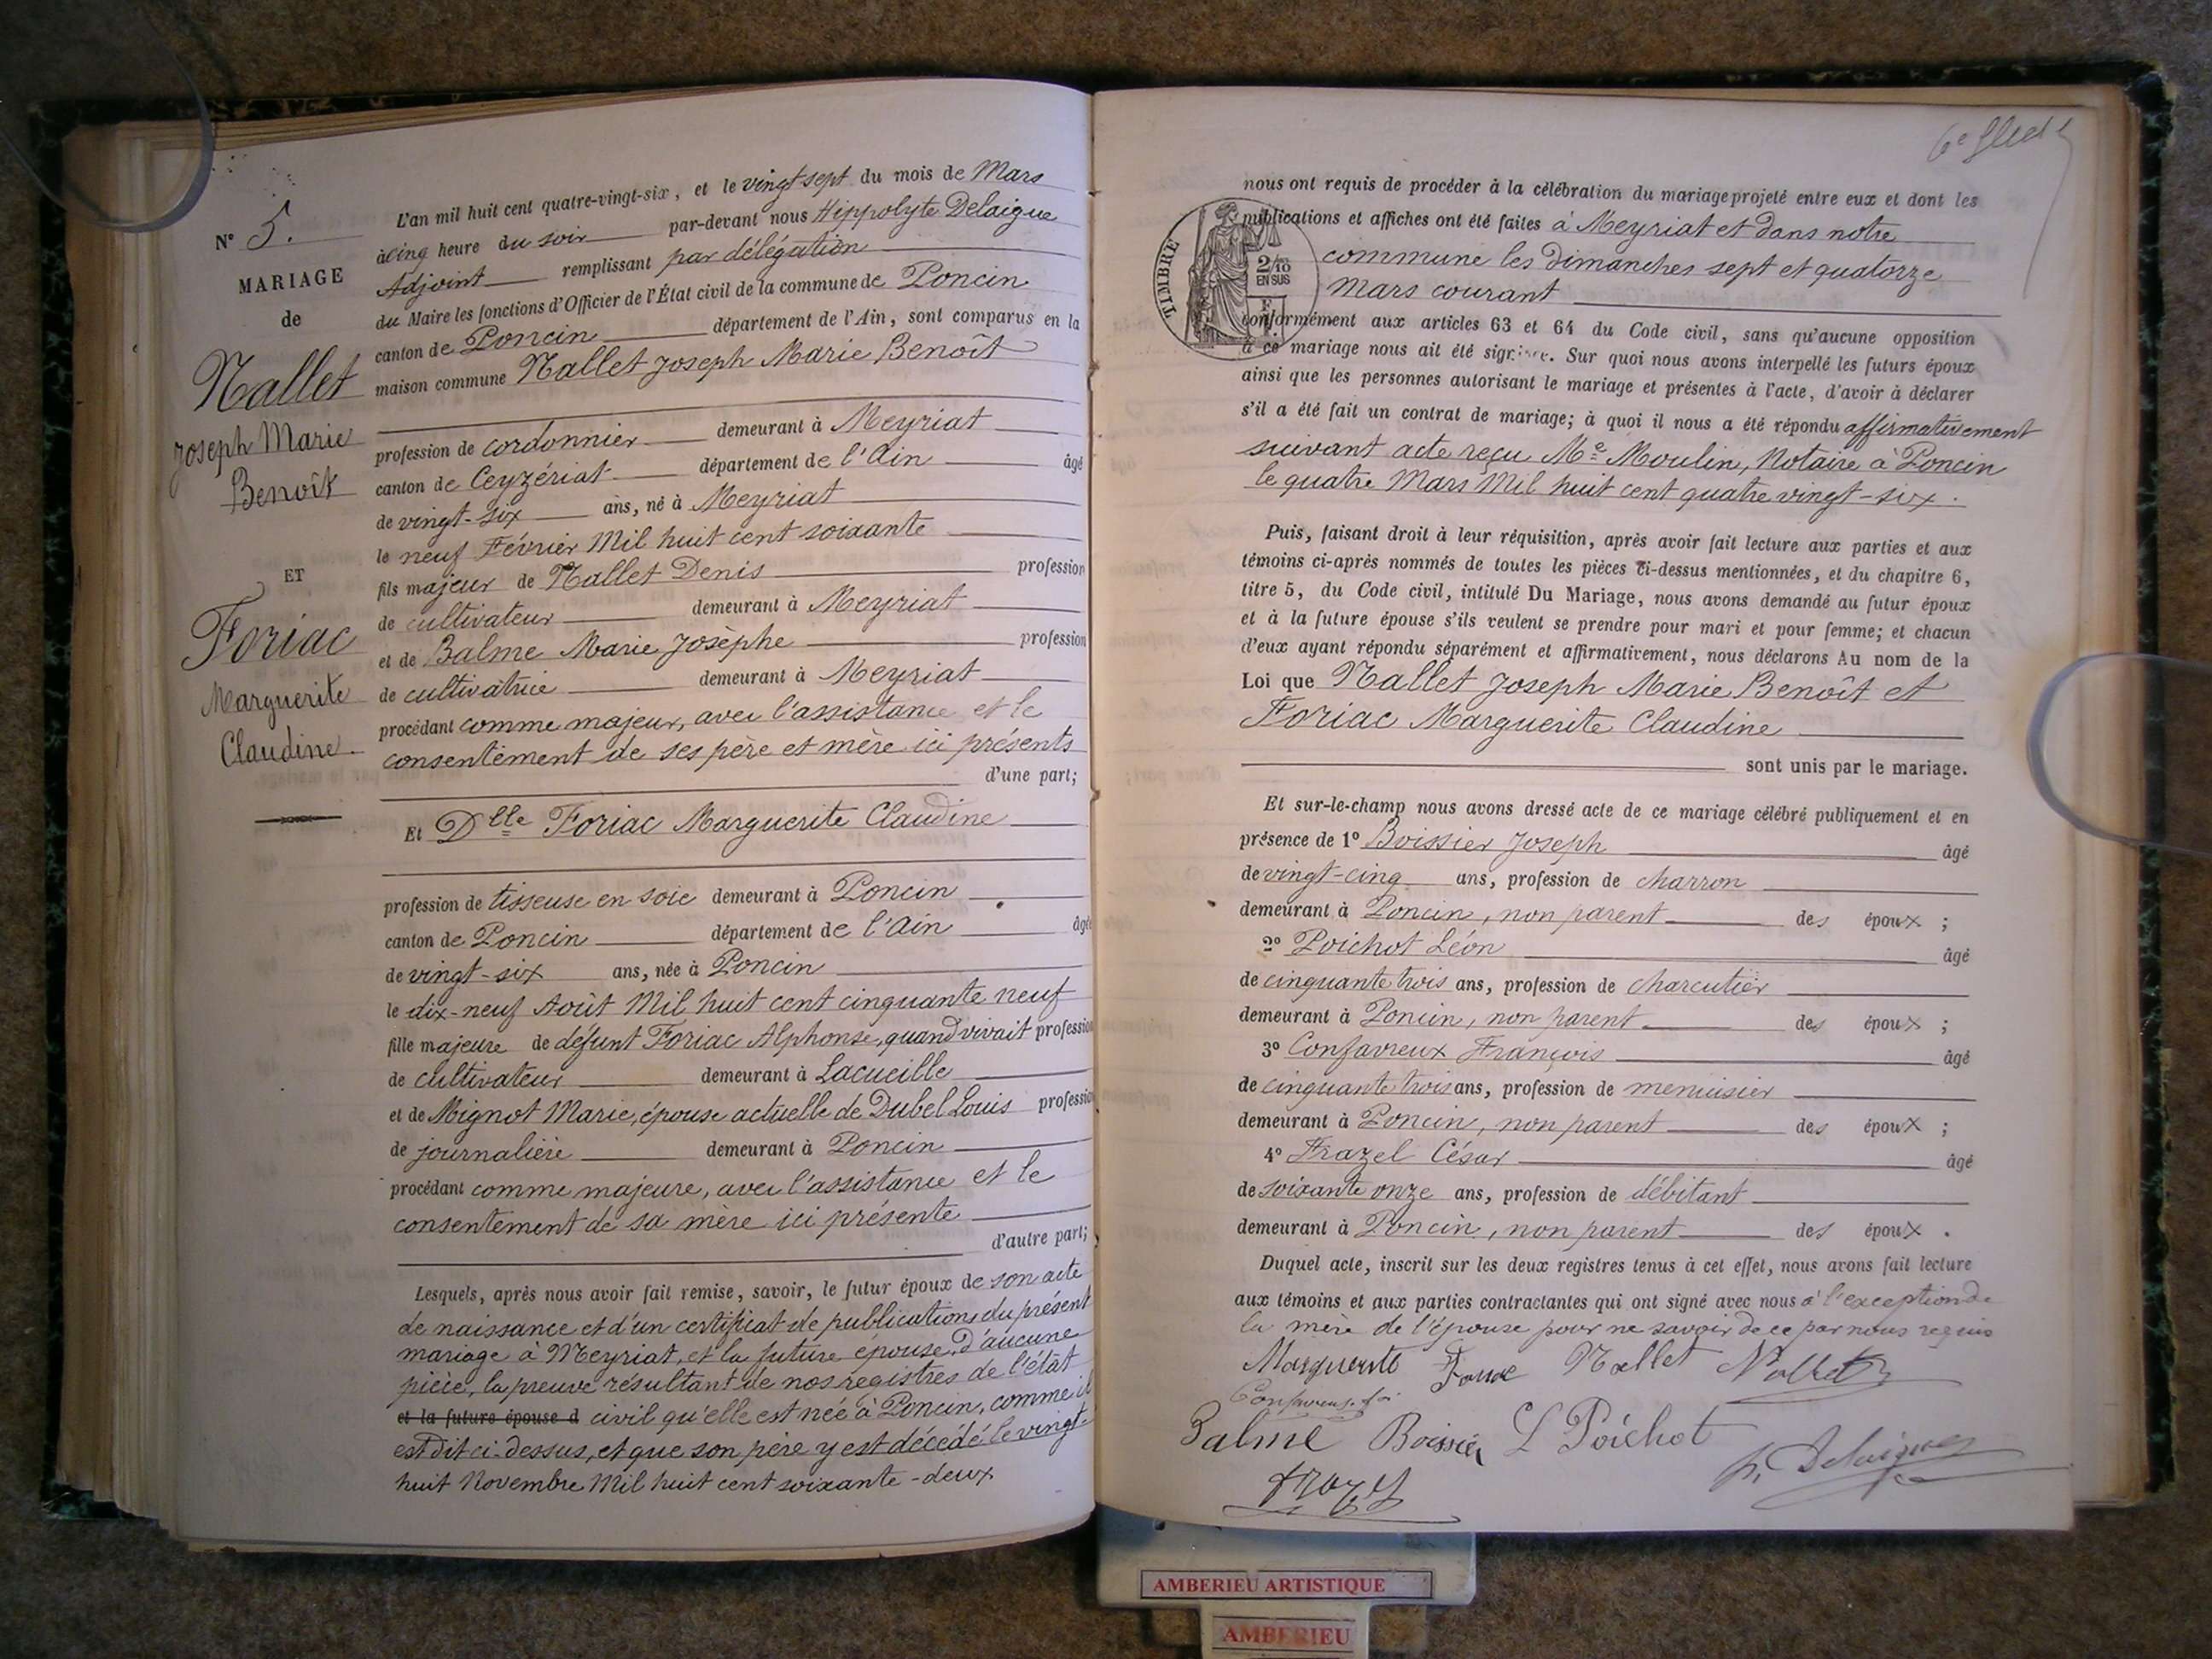 N° 5.
MARIAGE
de
Nallet
Joseph Marie
Benoît
ET
Foriac
Marguerite
Claudine
L'an mil huit cent quatre-vingt-six, et le vingt sept du mois de Mars
à cinq heure du soir par-devant nous Hippolyte Delaigue
Adjoint remplissant par délégation
du Maire les fonctions d'Officier de l'État civil de la commune de Poncin
canton de Poncin département de l'Ain, sont comparus en la
maison commune Nallet Joseph Marie Benoît
profession de cordonnier demeurant à Meyriat
canton de Ceyzériat département de l'Ain âgé
de vingt-six ans, né à Meyriat
le neuf Février Mil huit cent soixante
fils majeur de Nallet Denis profession
de cultivateur demeurant à Meyriat
et de Balme Marie Josèphe profession
de cultivatrice demeurant à Meyriat
procédant comme majeur, avec l'assistance et le
consentement de ses père et mère ici présents
d'une part;
Et Dlle Foriac Marguerite Claudine
profession de tisseuse en soie demeurant à Poncin
canton de Poncin département de l'Ain âgée
de vingt-six ans, née à Poncin
le dix-neuf Août Mil huit cent cinquante neuf
fille majeure de défunt Foriac Alphonse, quand vivait profession
de cultivateur demeurant à Lacueille
et de Mignot Marie, épouse actuelle de Dubel Louis profession
de journalière demeurant à Poncin
procédant comme majeure, avec l'assistance et le
consentement de sa mère ici présente
d'autre part;
Lesquels, après nous avoir fait remise, savoir, le futur époux de son acte
de naissance et d'un certificat de publications du présent
mariage à Meyriat, et la future épouse, d'aucune
pièce, la preuve résultant de nos registres de l'état
et la future épouse d civil qu'elle est née à Poncin, comme il
est dit ci-dessus, et que son père y est décédé le vingt-
huit Novembre Mil huit cent soixante-deux
nous ont requis de procéder à la célébration du mariage projeté entre eux et dont les
publications et affiches ont été faites à Meyriat et dans notre
commune les dimanches sept et quatorze
Mars courant
TIMBRE
2/10
EN SUS
conformément aux articles 63 et 64 du Code civil, sans qu'aucune opposition
à ce mariage nous ait été signifiée. Sur quoi nous avons interpellé les futurs époux
ainsi que les personnes autorisant le mariage et présentes à l'acte, d'avoir à déclarer
s'il a été fait un contrat de mariage; à quoi il nous a été répondu affirmativement
suivant acte reçu Me Moulin, Notaire à Poncin
le quatre Mars Mil huit cent quatre vingt-six.
Puis, faisant droit à leur réquisition, après avoir fait lecture aux parties et aux
témoins ci-après nommés de toutes les pièces ci-dessus mentionnées, et du chapitre 6,
titre 5, du Code civil, intitulé Du Mariage, nous avons demandé au futur époux
et à la future épouse s'ils veulent se prendre pour mari et pour femme; et chacun
d'eux ayant répondu séparément et affirmativement, nous déclarons Au nom de la
Loi que Nallet Joseph Marie Benoît et
Foriac Marguerite Claudine
sont unis par le mariage.
Et sur-le-champ nous avons dressé acte de ce mariage célébré publiquement et en
présence de 1° Boissier Joseph âgé
de vingt-cinq ans, profession de charron
demeurant à Poncin, non parent des époux ;
2° Poichot Léon âgé
de cinquante trois ans, profession de charcutier
demeurant à Poncin, non parent des époux ;
3° Confavreux François âgé
de cinquante trois ans, profession de menuisier
demeurant à Poncin, non parent des époux ;
4° Frazel César âgé
de soixante onze ans, profession de débitant
demeurant à Poncin, non parent des époux .
Duquel acte, inscrit sur les deux registres tenus à cet effet, nous avons fait lecture
aux témoins et aux parties contractantes qui ont signé avec nous à l'exception de
la mère de l'épouse pour ne savoir de ce par nous requis
Marguerite Nallet Nallet
Balme Boissier L Poichot
h. Delaigue
AMBERIEU ARTISTIQUE
AMBERIEU